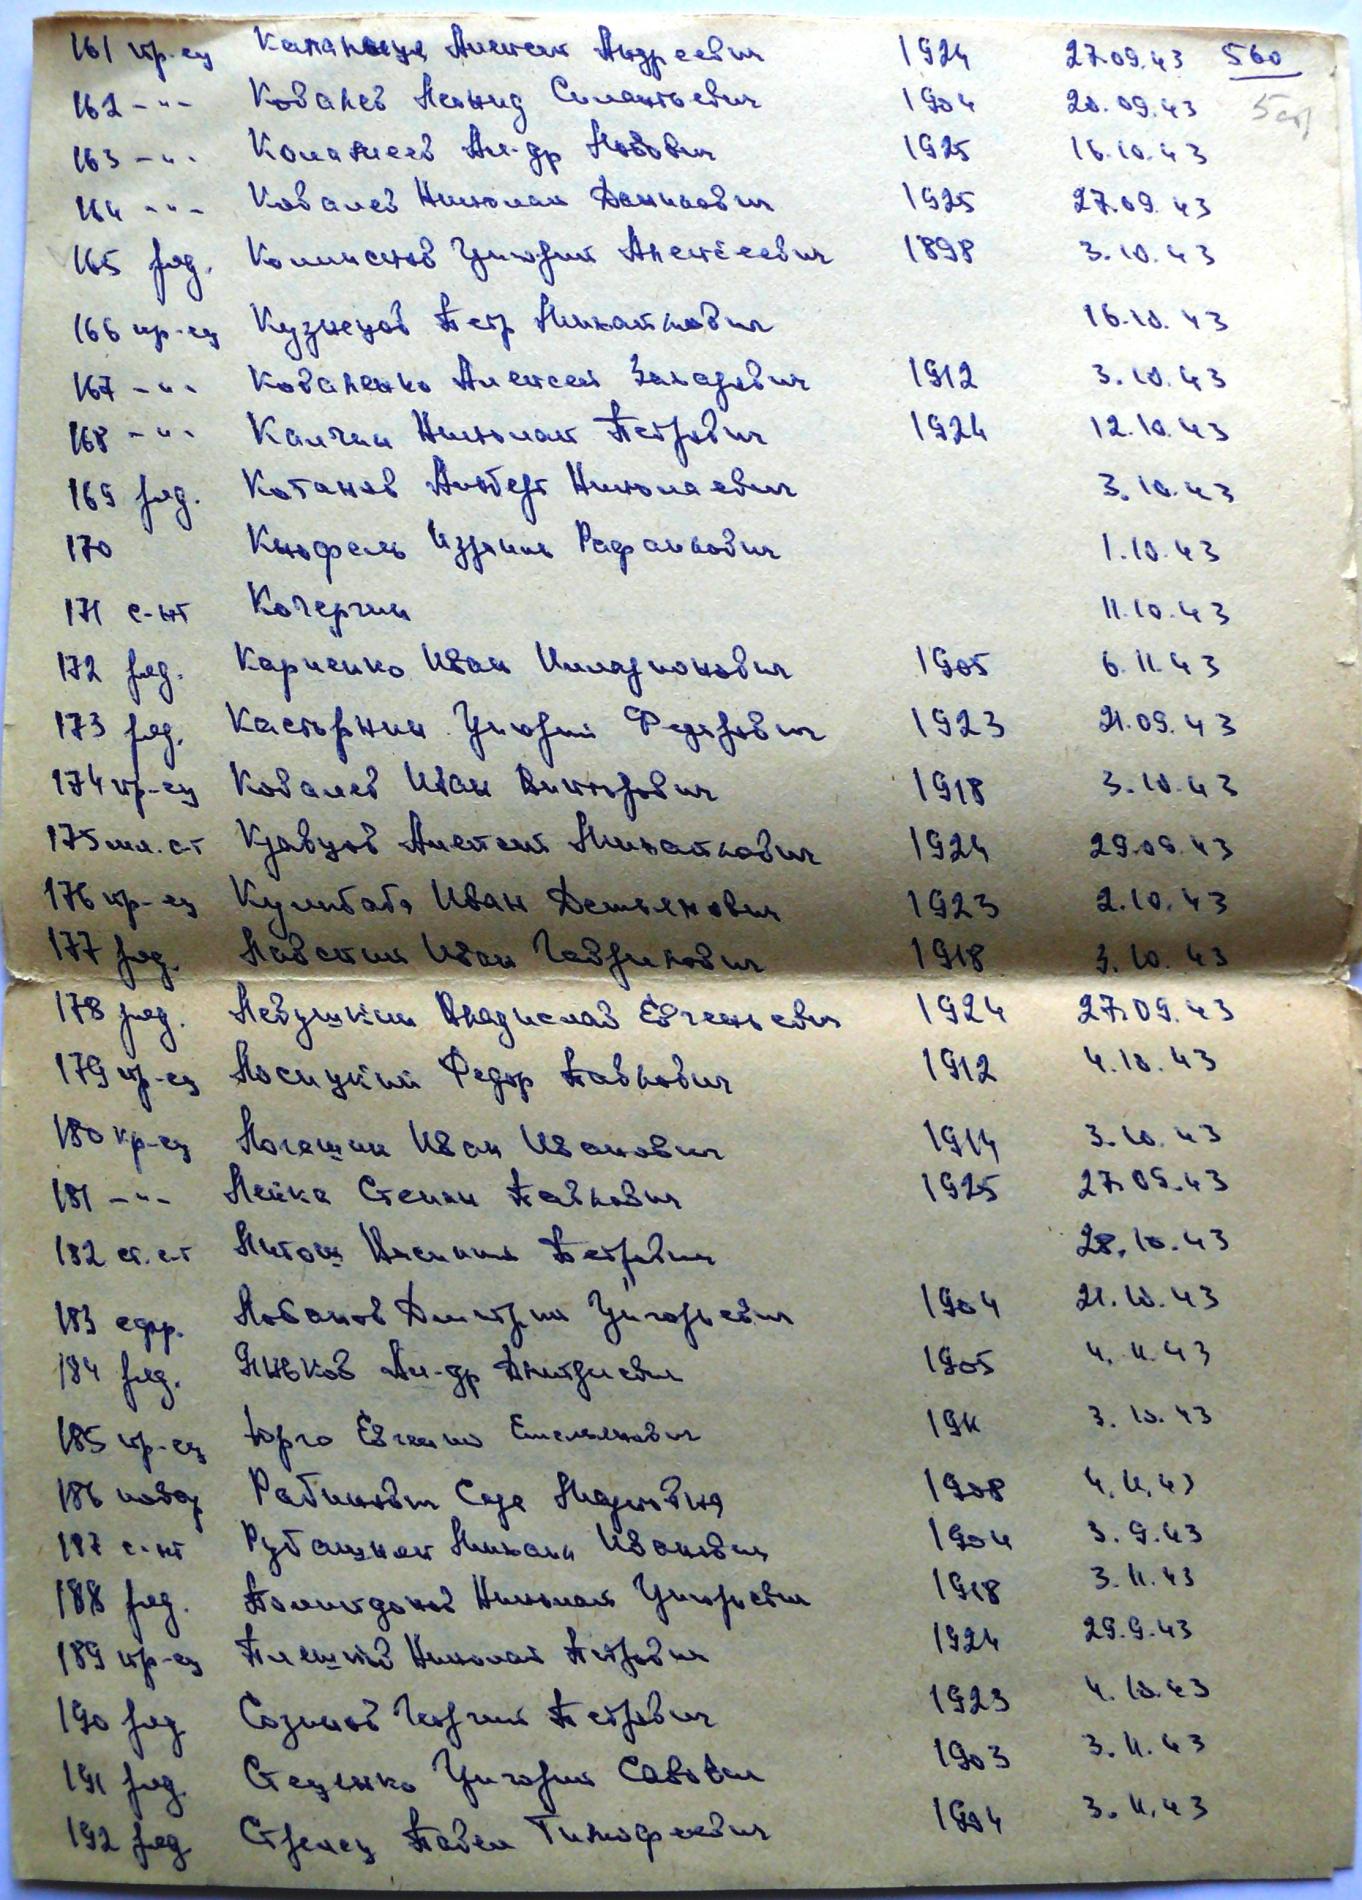 161 кр-ец Каланчук Алексей Андреевич 1924 27.09.43 560
162 -"- Ковалев Леонид Силантьевич 1904 20.09.43
163 -"- Коланеев Ал-др Львович 1925 16.10.43
164 -"- Ковалев Николай Данилович 1925 27.09.43
165 ряд. Колмыков Григорий Алексеевич 1898 3.10.43
166 кр-ец Кузнецов Петр Михайлович 16.10.43
167 -"- Коваленко Алексей Захарович 1912 3.10.43
168 -"- Калчин Николай Петрович 1924 12.10.43
169 ряд. Катанов Альберт Николаевич 3.10.43
170 Кнофель Израиль Рафаилович 1.10.43
171 с-нт Кочергин 11.10.43
172 ряд. Карпенко Иван Илларионович 1905 6.11.43
173 ряд. Касторнин Григорий Федорович 1923 21.09.43
174 кр-ец Ковалев Иван Викторович 1918 3.10.43
175 мл. с-т Кравцов Алексей Михайлович 1924 29.09.43
176 кр-ец Кулибаба Иван Демьянович 1923 2.10.43
177 ряд. Лавский Иван Гаврилович 1918 3.10.43
178 ряд. Левушкин Владислав Евгеньевич 1924 27.09.43
179 кр-ец Лосицкий Федор Павлович 1912 4.10.43
180 кр-ец Логешин Иван Иванович 1914 3.10.43
181 -"- Лейка Степан Павлович 1925 27.09.43
182 ст. с-т Литош Петрович 28.10.43
183 ефр. Лобанов Дмитрий Григорьевич 1904 21.10.43
184 ряд. Яньков Ал-др Дмитриевич 1905 4.11.43
185 кр-ец Юрго Евгений Емельянович 1911 3.10.43
186 повар Рабинович Сара Марковна 1908 4.11.43
187 с-нт Рубашняк Михаил Иванович 1904 3.9.43
188 ряд. Николай Григорьевич 1918 3.11.43
189 кр-ец Плешков Николай Петрович 1924 29.9.43
190 ряд Сазонов Георгий Петрович 1923 4.10.43
191 ряд. Стеценко Григорий Саввич 1903 3.11.43
192 ряд Стрелец Павел Тимофеевич 1904 3.11.43